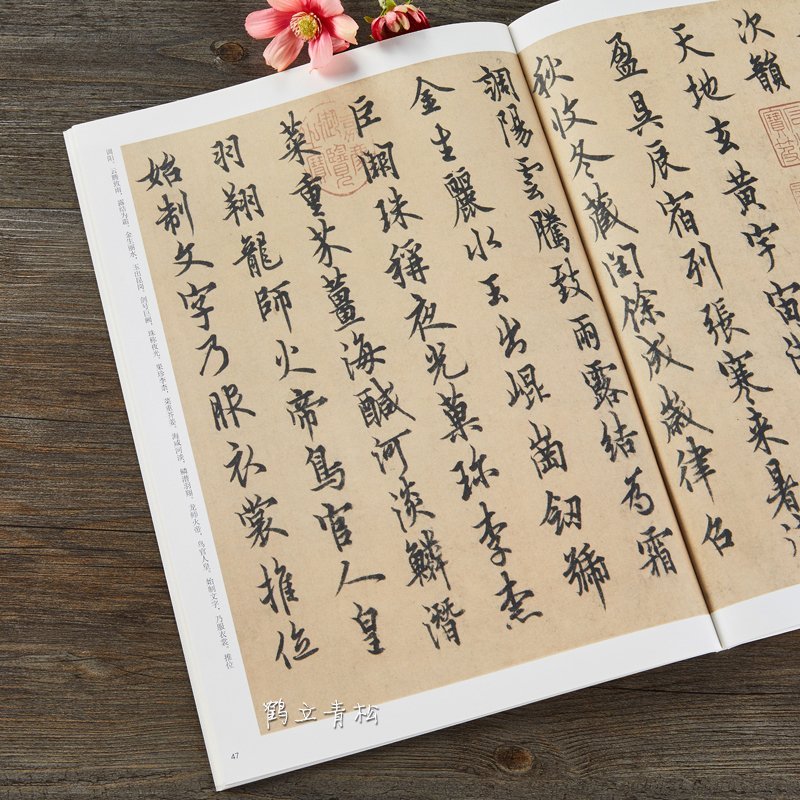 次韻
天地玄黃宇宙
盈昃辰宿列張寒來暑
秋收冬藏閏餘成歲律呂
調陽雲騰致雨露結為霜
金生麗水玉出崐崗劒號
巨闕珠稱夜光菓珎李柰
菜重芥薑海鹹河淡鱗潛
羽翔龍師火帝鳥官人皇
始制文字乃服衣裳推位
调阳。云腾致雨，露结为霜。金生丽水，玉出昆冈。剑号巨阙，珠称夜光。果珍李柰，菜重芥姜。海咸河淡，鳞潜羽翔。龙师火帝，鸟官人皇。始制文字，乃服衣裳。推位
47
鹤立青松